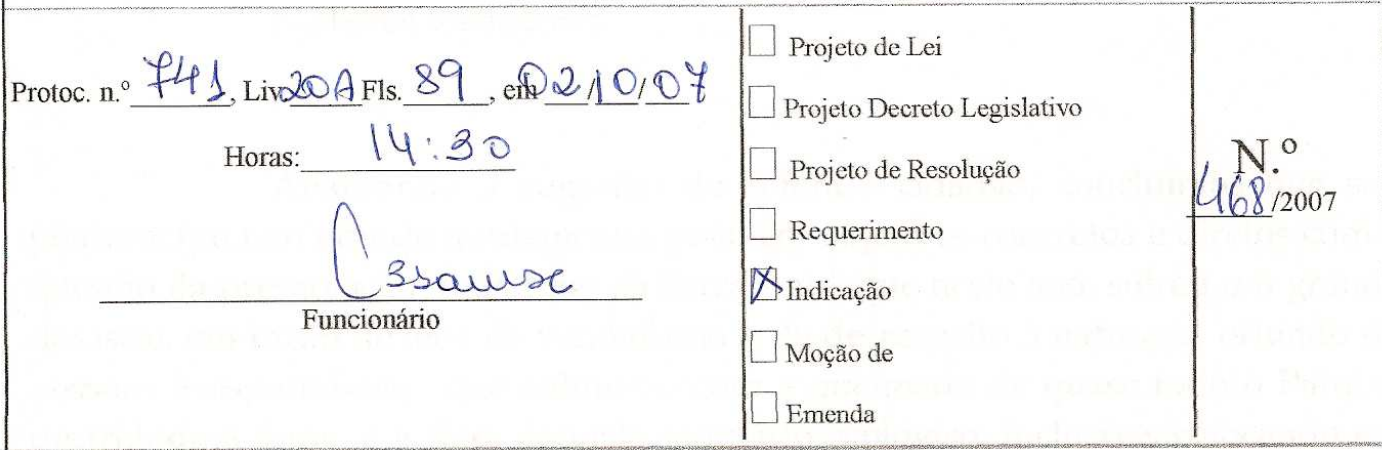 Protoc. n.º 741, Liv 20A Fls. 89, em 02/10/07
Horas: 14:30
Funcionário
Projeto de Lei
Projeto Decreto Legislativo
Projeto de Resolução
Requerimento
X Indicação
Moção de
Emenda
N.º
468/2007